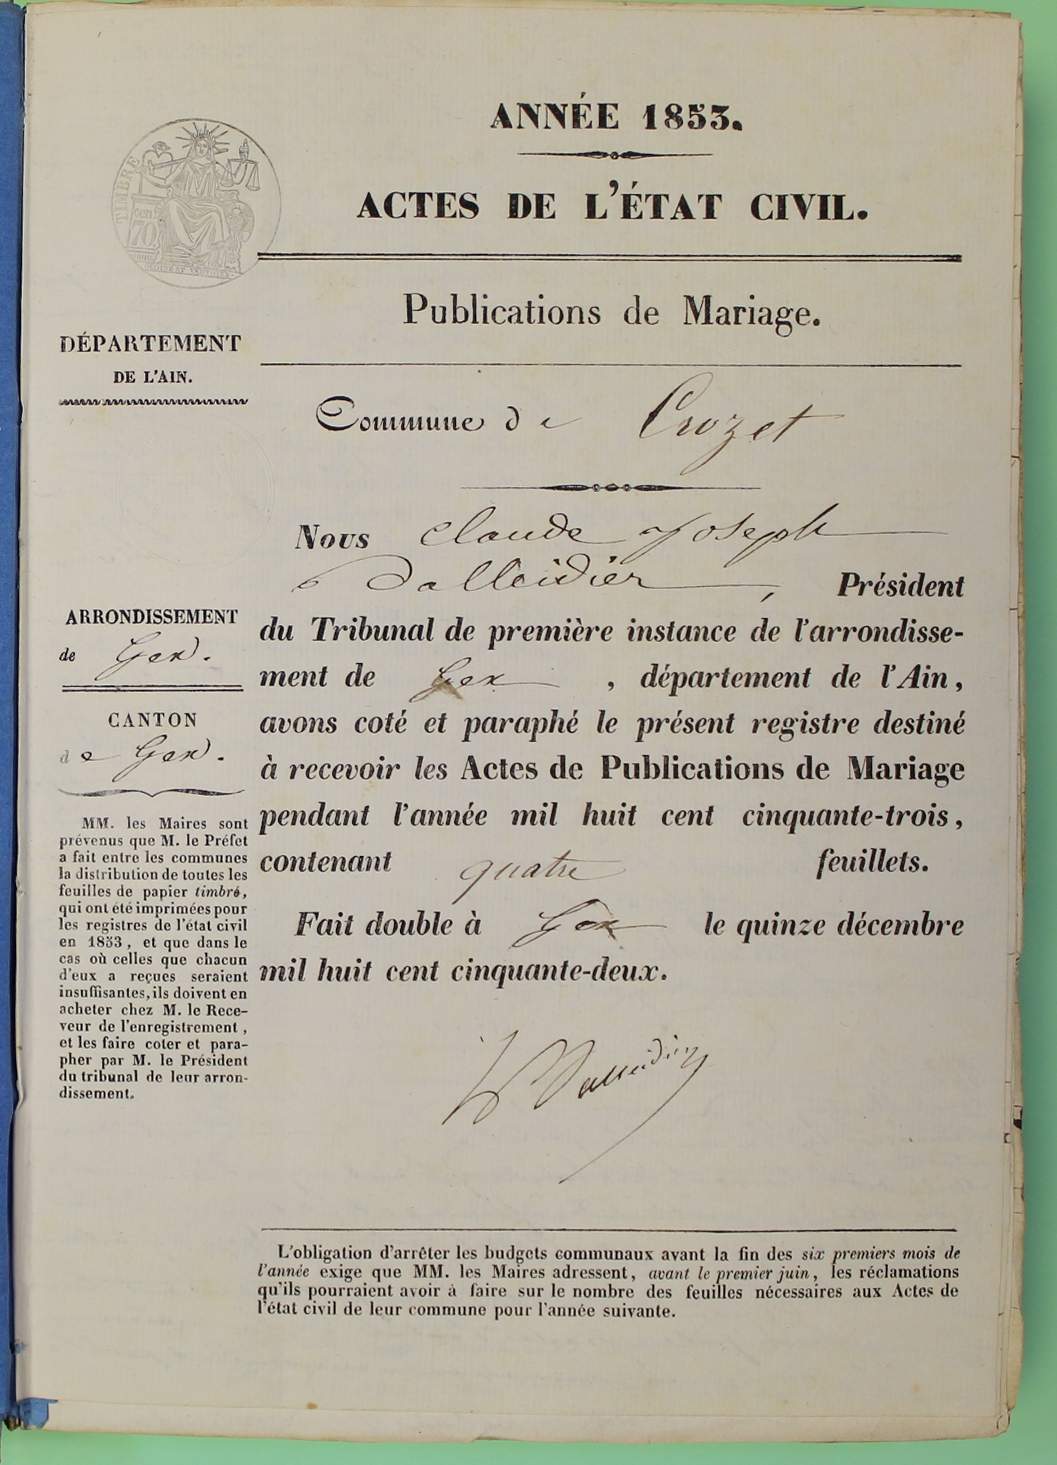 ANNÉE 1853.
ACTES DE L'ÉTAT CIVIL.
TIMBRE
70
Publications de Mariage.
DÉPARTEMENT
DE L'AIN.
Commune de Crozet
Nous Claude Joseph
Dalleidier, Président
du Tribunal de première instance de l'arrondisse-
ment de Gex, département de l'Ain,
avons coté et paraphé le présent registre destiné
à recevoir les Actes de Publications de Mariage
pendant l'année mil huit cent cinquante-trois,
contenant quatre feuillets.
Fait double à Gex le quinze décembre
mil huit cent cinquante-deux.
Dalleidier
ARRONDISSEMENT
de Gex.
CANTON
de Gex.
MM. les Maires sont
prévenus que M. le Préfet
a fait entre les communes
la distribution de toutes les
feuilles de papier timbré,
qui ont été imprimées pour
les registres de l'état civil
en 1853, et que dans le
cas où celles que chacun
d'eux a reçues seraient
insuffisantes, ils doivent en
acheter chez M. le Rece-
veur de l'enregistrement,
et les faire coter et para-
pher par M. le Président
du tribunal de leur arron-
dissement.
L'obligation d'arrêter les budgets communaux avant la fin des six premiers mois de
l'année exige que MM. les Maires adressent, avant le premier juin, les réclamations
qu'ils pourraient avoir à faire sur le nombre des feuilles nécessaires aux Actes de
l'état civil de leur commune pour l'année suivante.